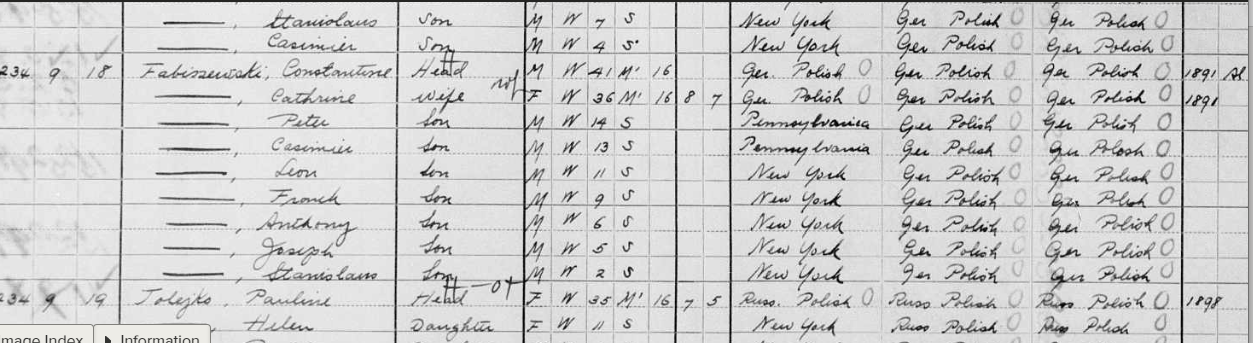 ———, Stanislaus Son M W 7 S New York Ger Polish O Ger Polish O
———, Casimier Son M W 4 S New York Ger Polish O Ger Polish O
234 9 18 Fabiszewski, Constantine Head M W 41 M' 16 Ger. Polish O Ger Polish O Ger Polish O 1891 Al
———, Cathrine Wife F W 36 M' 16 8 7 Ger. Polish O Ger Polish O Ger Polish O 1891
———, Peter Son M W 14 S Pennsylvania Ger Polish O Ger Polish O
———, Casimier Son M W 13 S Pennsylvania Ger Polish O Ger Polosh O
———, Leon Son M W 11 S New York Ger Polish O Ger Polish O
———, Frank Son M W 9 S New York Ger Polish O Ger Polish O
———, Anthony Son M W 6 S New York Ger Polish O Ger Polish O
———, Joseph Son M W 5 S New York Ger Polish O Ger Polish O
———, Stanislaus Son M W 2 S New York Ger Polish O Ger Polish O
234 9 19 Tolejko, Pauline Head F W 35 M' 16 7 5 Russ. Polish O Russ Polish O Russ Polish O 1898
Helen Daughter F W 11 S New York Russ Polish O Russ Polish O
mage Index Information